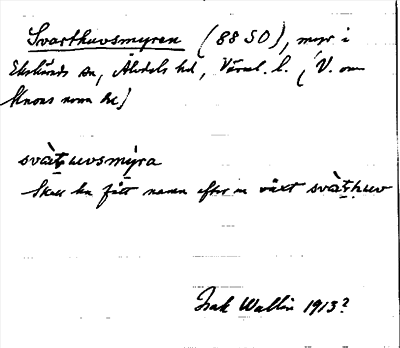 Svarthuvsmyren (88 SO), myr i
Ekshärads sn, Älvdals hd, Värml. l. (V. om
norra
svàt̠ḥuvsmy̠ra
Skall ha fått namn efter en växt svàt̠ḥuv
Isak Wallin 1913?